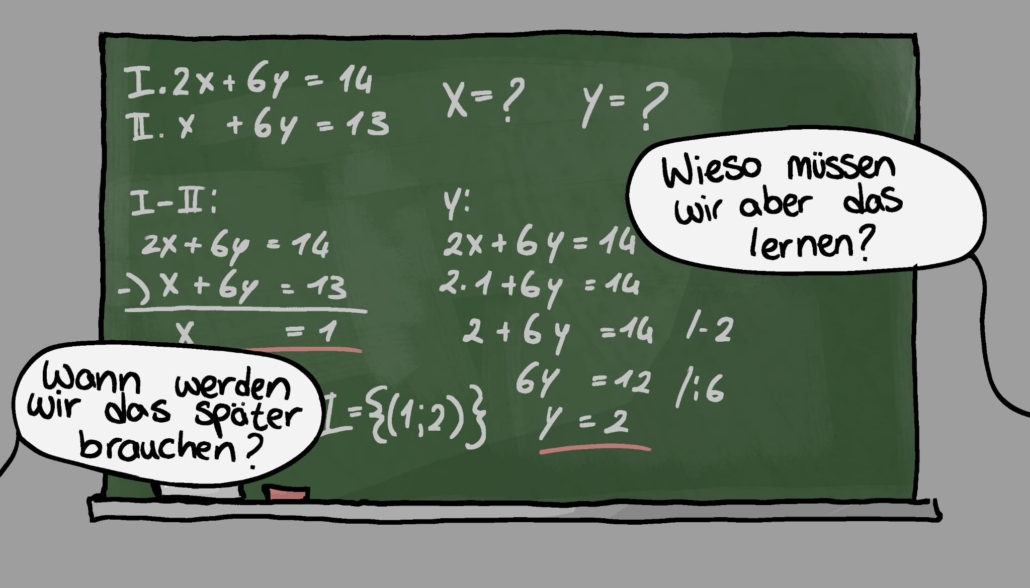 I. 2x + 6y = 14
II. x + 6y = 13
x = ? y = ?
I - II:
2x + 6y = 14
-) x + 6y = 13
x = 1
y:
2x + 6y = 14
2·1 + 6y = 14
2 + 6y = 14 /-2
6y = 12 /:6
y = 2
L={(1;2)}
Wieso müssen
wir aber das
lernen?
Wann werden
wir das später
brauchen?